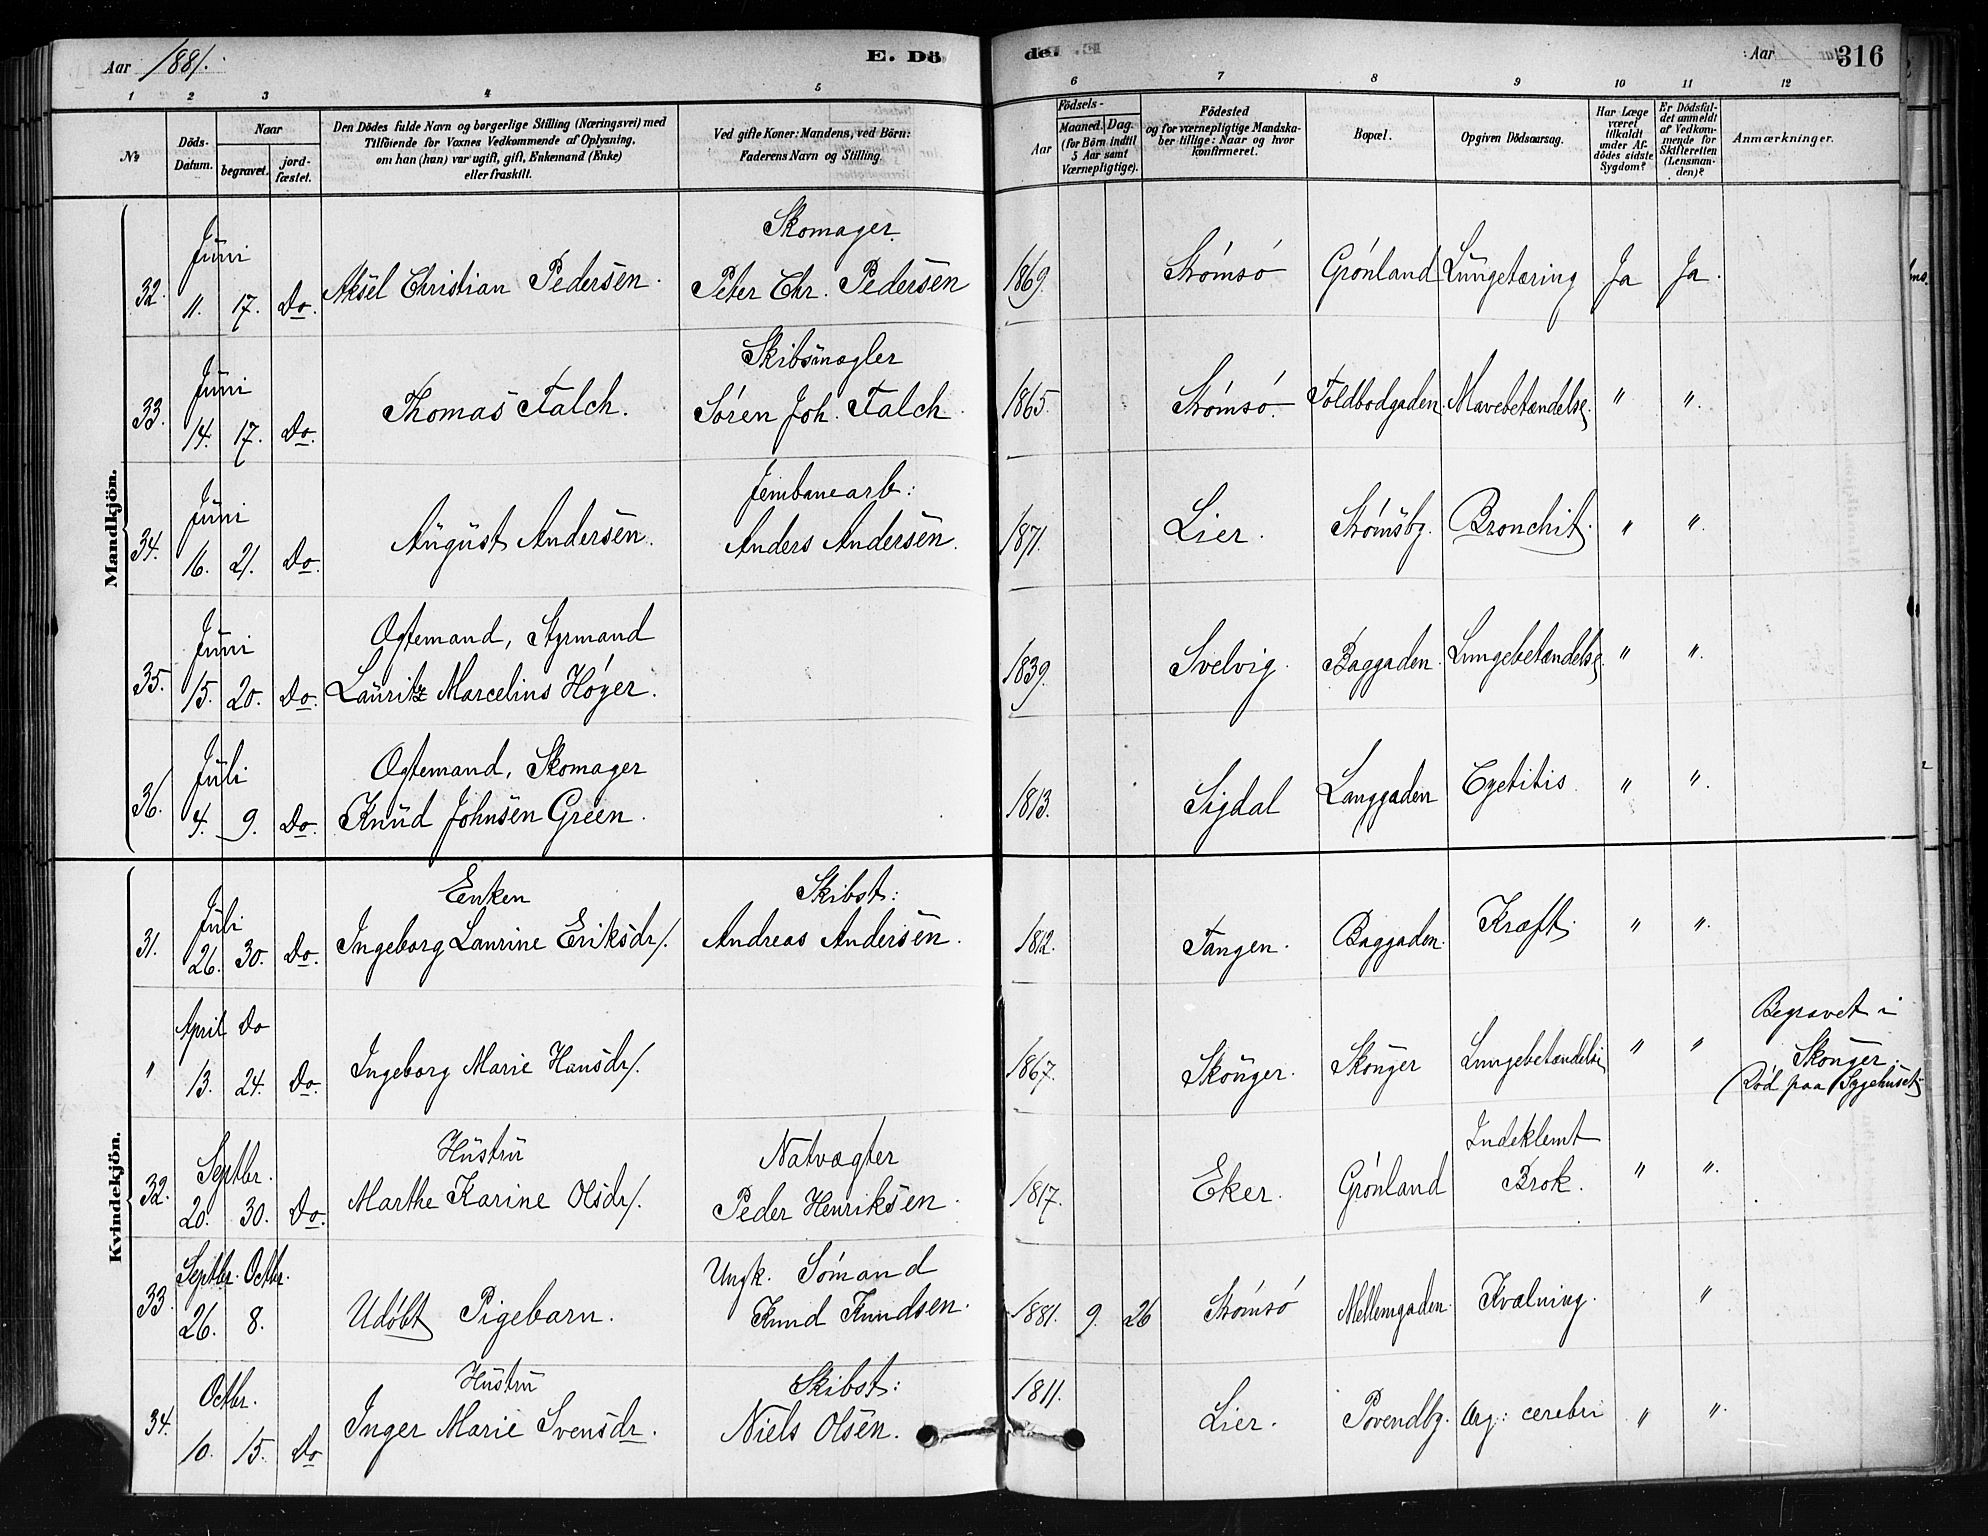 Aar 1881.
E. Döde.
Aar
316
1 2 3 4 5 6 7 8 9 10 11 12
No
Döds-Datum.
Naar
begravet.
jord-fæstet.
Den Dödes fulde Navn og borgerlige Stilling (Næringsvei) med
Tilföiende for Voxnes Vedkommende af Oplysning,
om han (hun) var ugift, gift, Enkemand (Enke)
eller fraskilt.
Ved gifte Koner: Mandens, ved Börn:
Faderens Navn og Stilling.
Födsels-
Aar
Maaned. Dag.
(for Börn indtil
5 Aar samt
Værnepligtige).
Födested
og for værnepligtige Mandska-
ber tillige: Naar og hvor
konfirmeret.
Bopæl.
Opgiven Dödsaarsag.
Har Læge
været
tilkaldt
under Af-
dödes sidste
Sygdom?
Er Dödsfal-
det anmeldt
af Vedkom-
mende for
Skifteretten
(Lensman-
den)?
Anmærkninger.
Mandkjön.
Juni Skomager
32. 11. 17. Do. Aksel Christian Pedersen. Peter Chr. Pedersen 1869. Strømsø Grønland Lungetæring Ja Ja.
Juni Skibsmægler
33. 14. 17. Do. Thomas Falch. Søren Joh. Falch 1865. Strømsø. Toldbodgaden. Mavebetændelse. " ".
Juni Jernbanearb:
34. 16. 21. Do. August Andersen. Anders Andersen. 1871. Lier. Strømsbg. Bronchit. " ".
Juni Ægtemand, Styrmand
35. 15. 20. Do. Lauritz Marcelius Høyer. 1839. Svelvig. Baggaden. Lungebetændelse. " ".
Juli Ægtemand, Skomager
36. 4. 9. Do. Knud Johnsen Green. 1813. Sigdal Langgaden " ".
Kvindekjön.
Juli Enken Skibst:
31. 26. 30. Do. Ingeborg Laurine Eriksdr/. Andreas Andersen. 1812. Tangen. Baggaden. Kræft. " ".
April Do
" 13. 24. Do. Ingeborg Marie Hansdr/. 1867. Skouger. Skouger Lungebetændelse " " Begravet i
Skouger.
(Død paa Sygehuset)
Septbr. Hustru Natvægter Indeklemt
32. 20. 30. Do. Marthe Karine Olsdr/. Peder Henriksen. 1817. Eker. Grønland Brok. " ".
Septbr. Octbr. Ungk. Sømand
33. 26. 8. Udøbt Pigebarn. Knud Knudsen. 1881. 9. 26 Strømsø Mellemgaden. Kvælning. "
Octbr. Hustru Skibst:
34. 10. 15. Do Inger Marie Svensdr. Niels Olsen. 1811. Lier. cerebri " ".